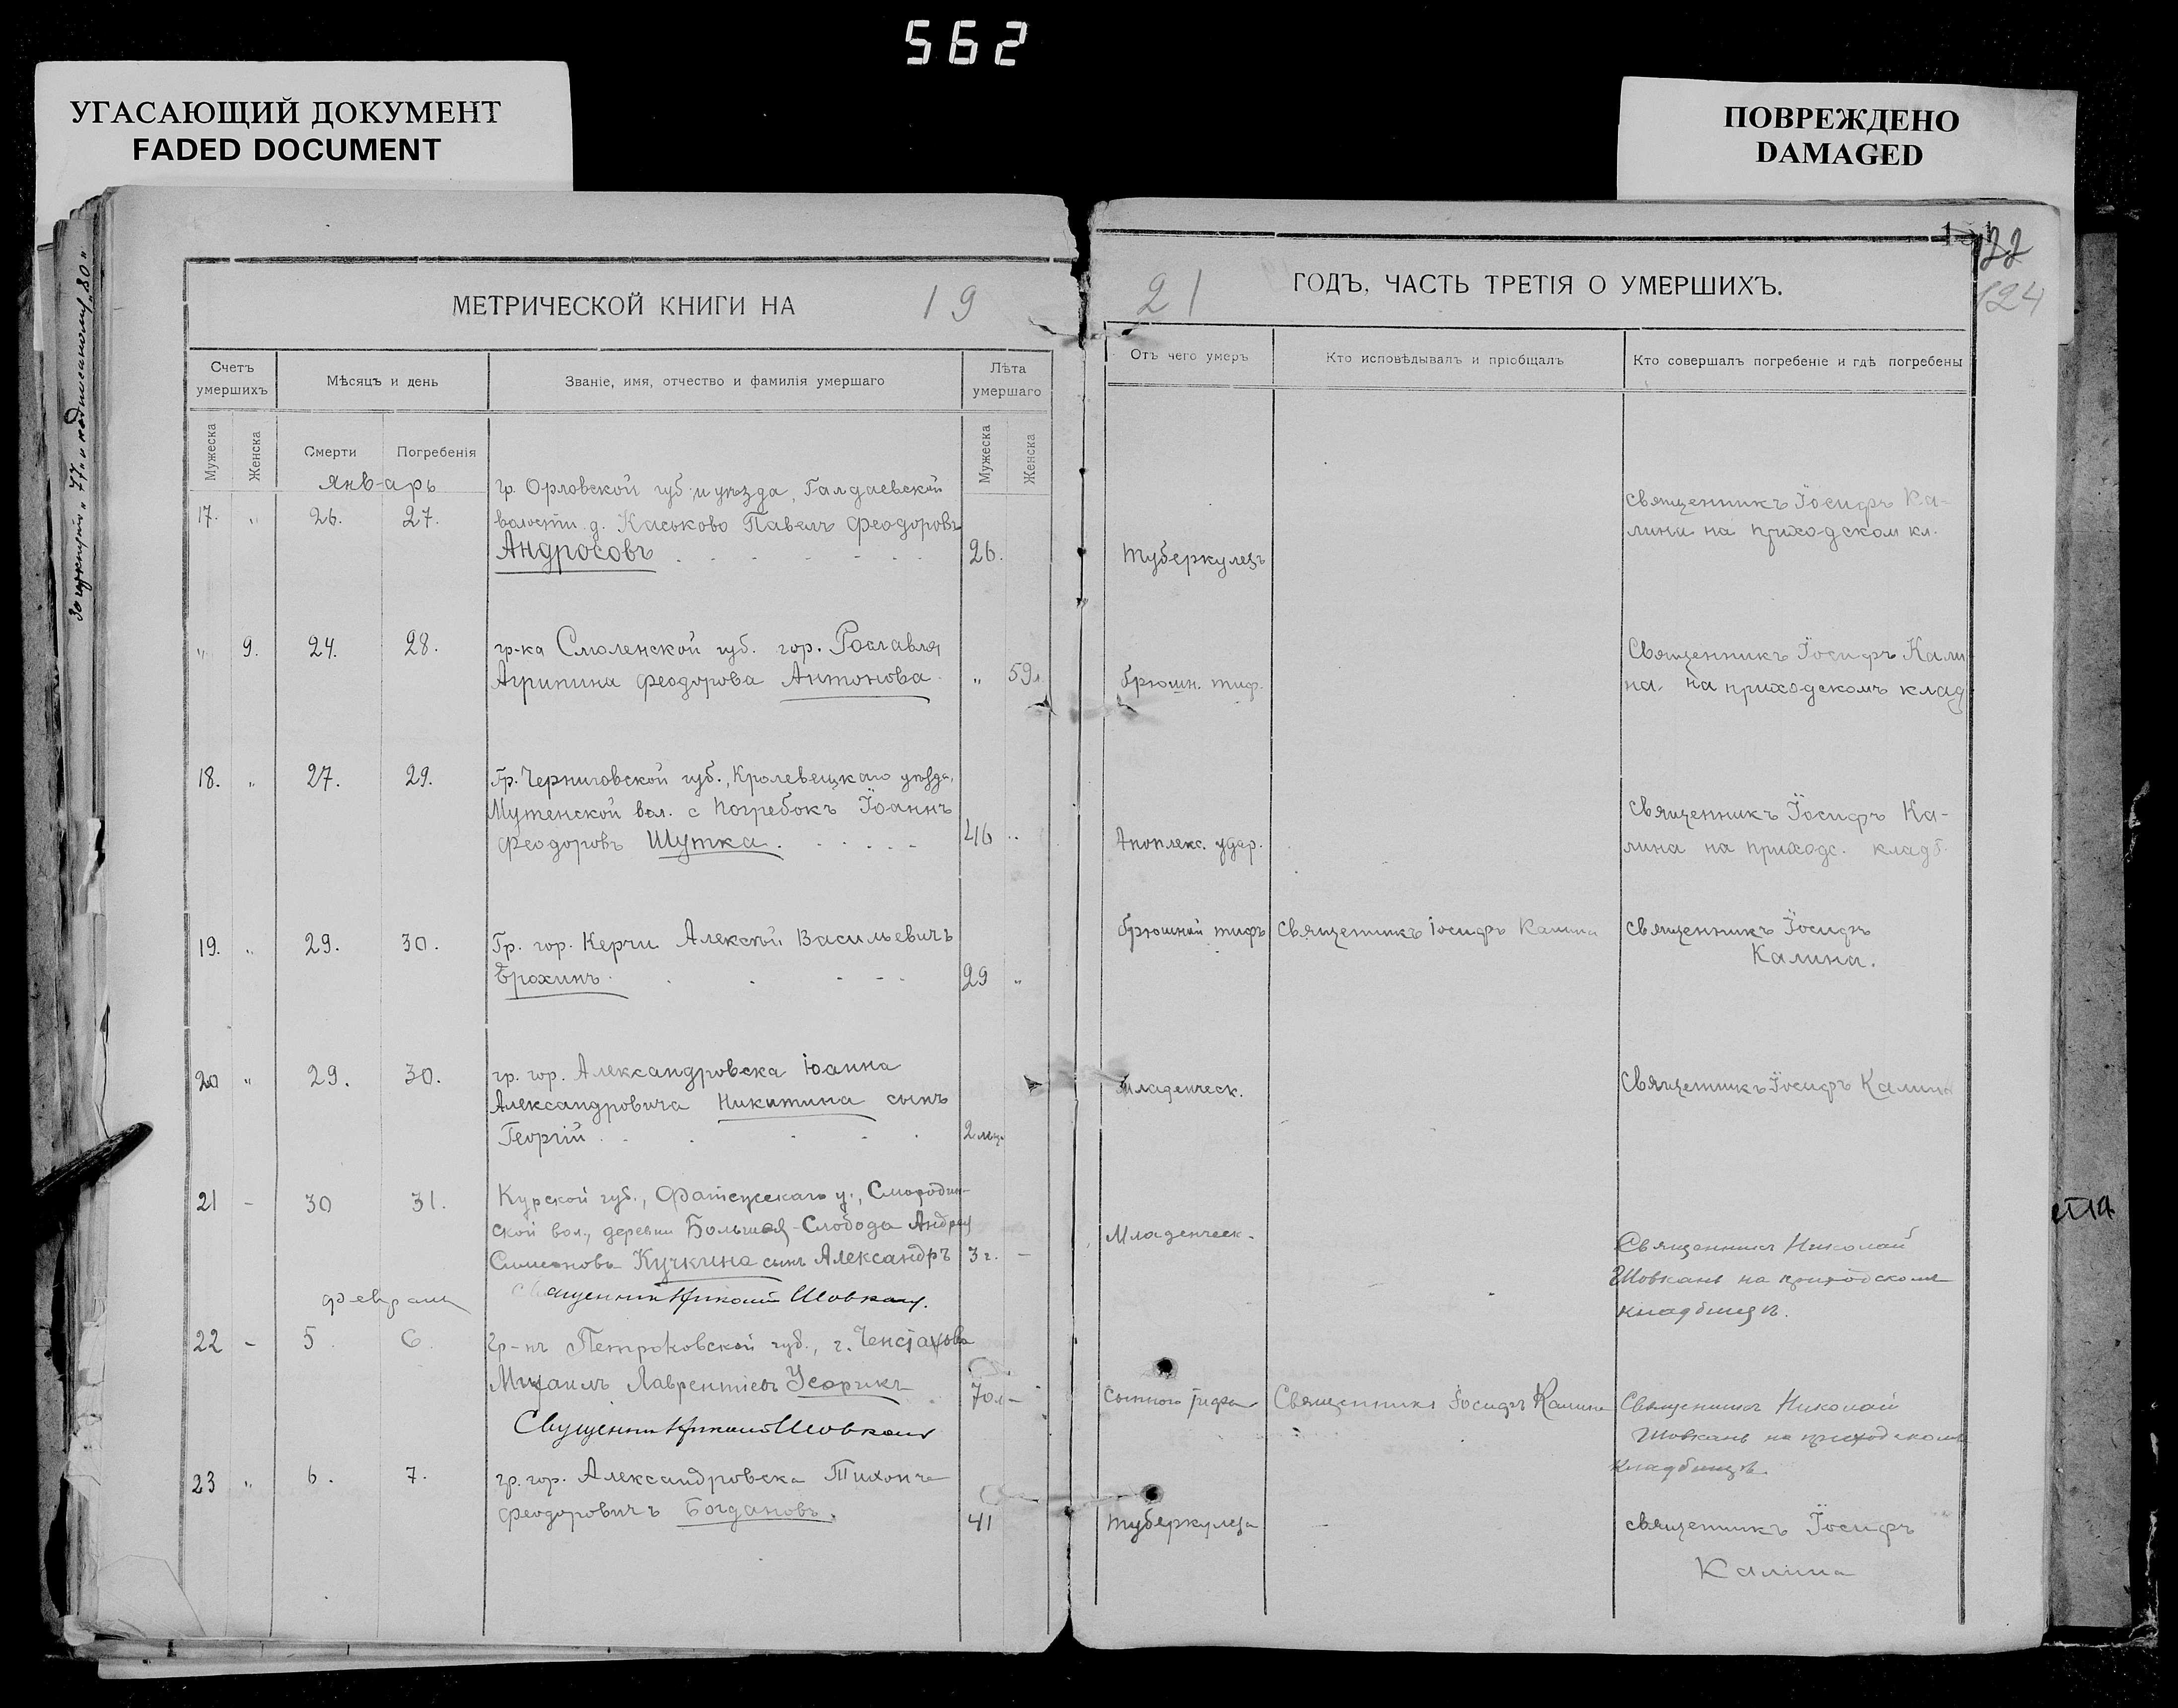 562
УГАСАЮЩИЙ ДОКУМЕНТ
FADED DOCUMENT
ПОВРЕЖДЕНО
DAMAGED
122
124
МЕТРИЧЕСКОЙ КНИГИ НА 19
21 ГОДЪ, ЧАСТЬ ТРЕТІЯ О УМЕРШИХЪ.
Счетъ умершихъ
Мѣсяцъ и день
Званіе, имя, отчество и фамилія умершаго
Лѣта умершаго
Отъ чего умеръ
Кто исповѣдывалъ и пріобщалъ
Кто совершалъ погребеніе и гдѣ погребены
Мужеска
Женска
Смерти
Погребенія
Мужеска
Женска
январь
17. " 26. 27.
гр. Орловской губ. и уѣзда, Галдаевской
волости д. Каськово Павелъ Феодоровъ
Андросовъ 26.
Туберкулезъ
священникъ Іосифъ Ка-
лина на приходском кл.
" 9. 24. 28.
гр-ка Смоленской губ. гор. Рославля
Агрипина Феодорова Антонова " 59л.
брюшн. тиф.
Священникъ Іосифъ Кали
на. на приходскомъ клад
18. " 27. 29.
Гр. Черниговской губ., Кролевецкаго уѣзда,
Мутенской вол. с Погребокъ Іоаннъ
Феодоровъ Шутка. 46 "
Апоплекс. удар.
священникъ Іосифъ Ка-
лина на приходс. кладб.
19. " 29. 30.
Гр. гор. Керчи Алексѣй Васильевичъ
Ерохинъ 29 "
брюшной тифъ
Священникъ Іосифъ Калина
священникъ Іосифъ
Калина.
20 " 29. 30.
гр. гор. Александровска Іоанна
Александровича Никитина сынъ
Георгій 2 мца
Младенческ.
Священникъ Іосифъ Калина
21 - 30 31.
Курской губ., Фатежскаго у., Смородин-
ской вол., деревни Большая-Слобода Андрея
Симеонова Кучкина сынъ Александръ 3 г. -
Младенческ.
Священникъ Николай
Шовкань на приходскомъ
кладбищѣ.
Священник Николай Шовкань.
февраль
22 - 5 6
Гр-нъ Петроковской губ., г. Ченстахова
Михаилъ Лаврентіевъ 70 л -
Сыпного тифа
Священникъ Іосифъ Калина
Священникъ Николай
Шовкань на приходскомъ
кладбищѣ
Священник Николай Шовкань
23 " 6. 7.
гр. гор. Александровска Тихонъ
Феодоровичъ Богдановъ. 41
туберкулеза
священникъ Іосифъ
Калина